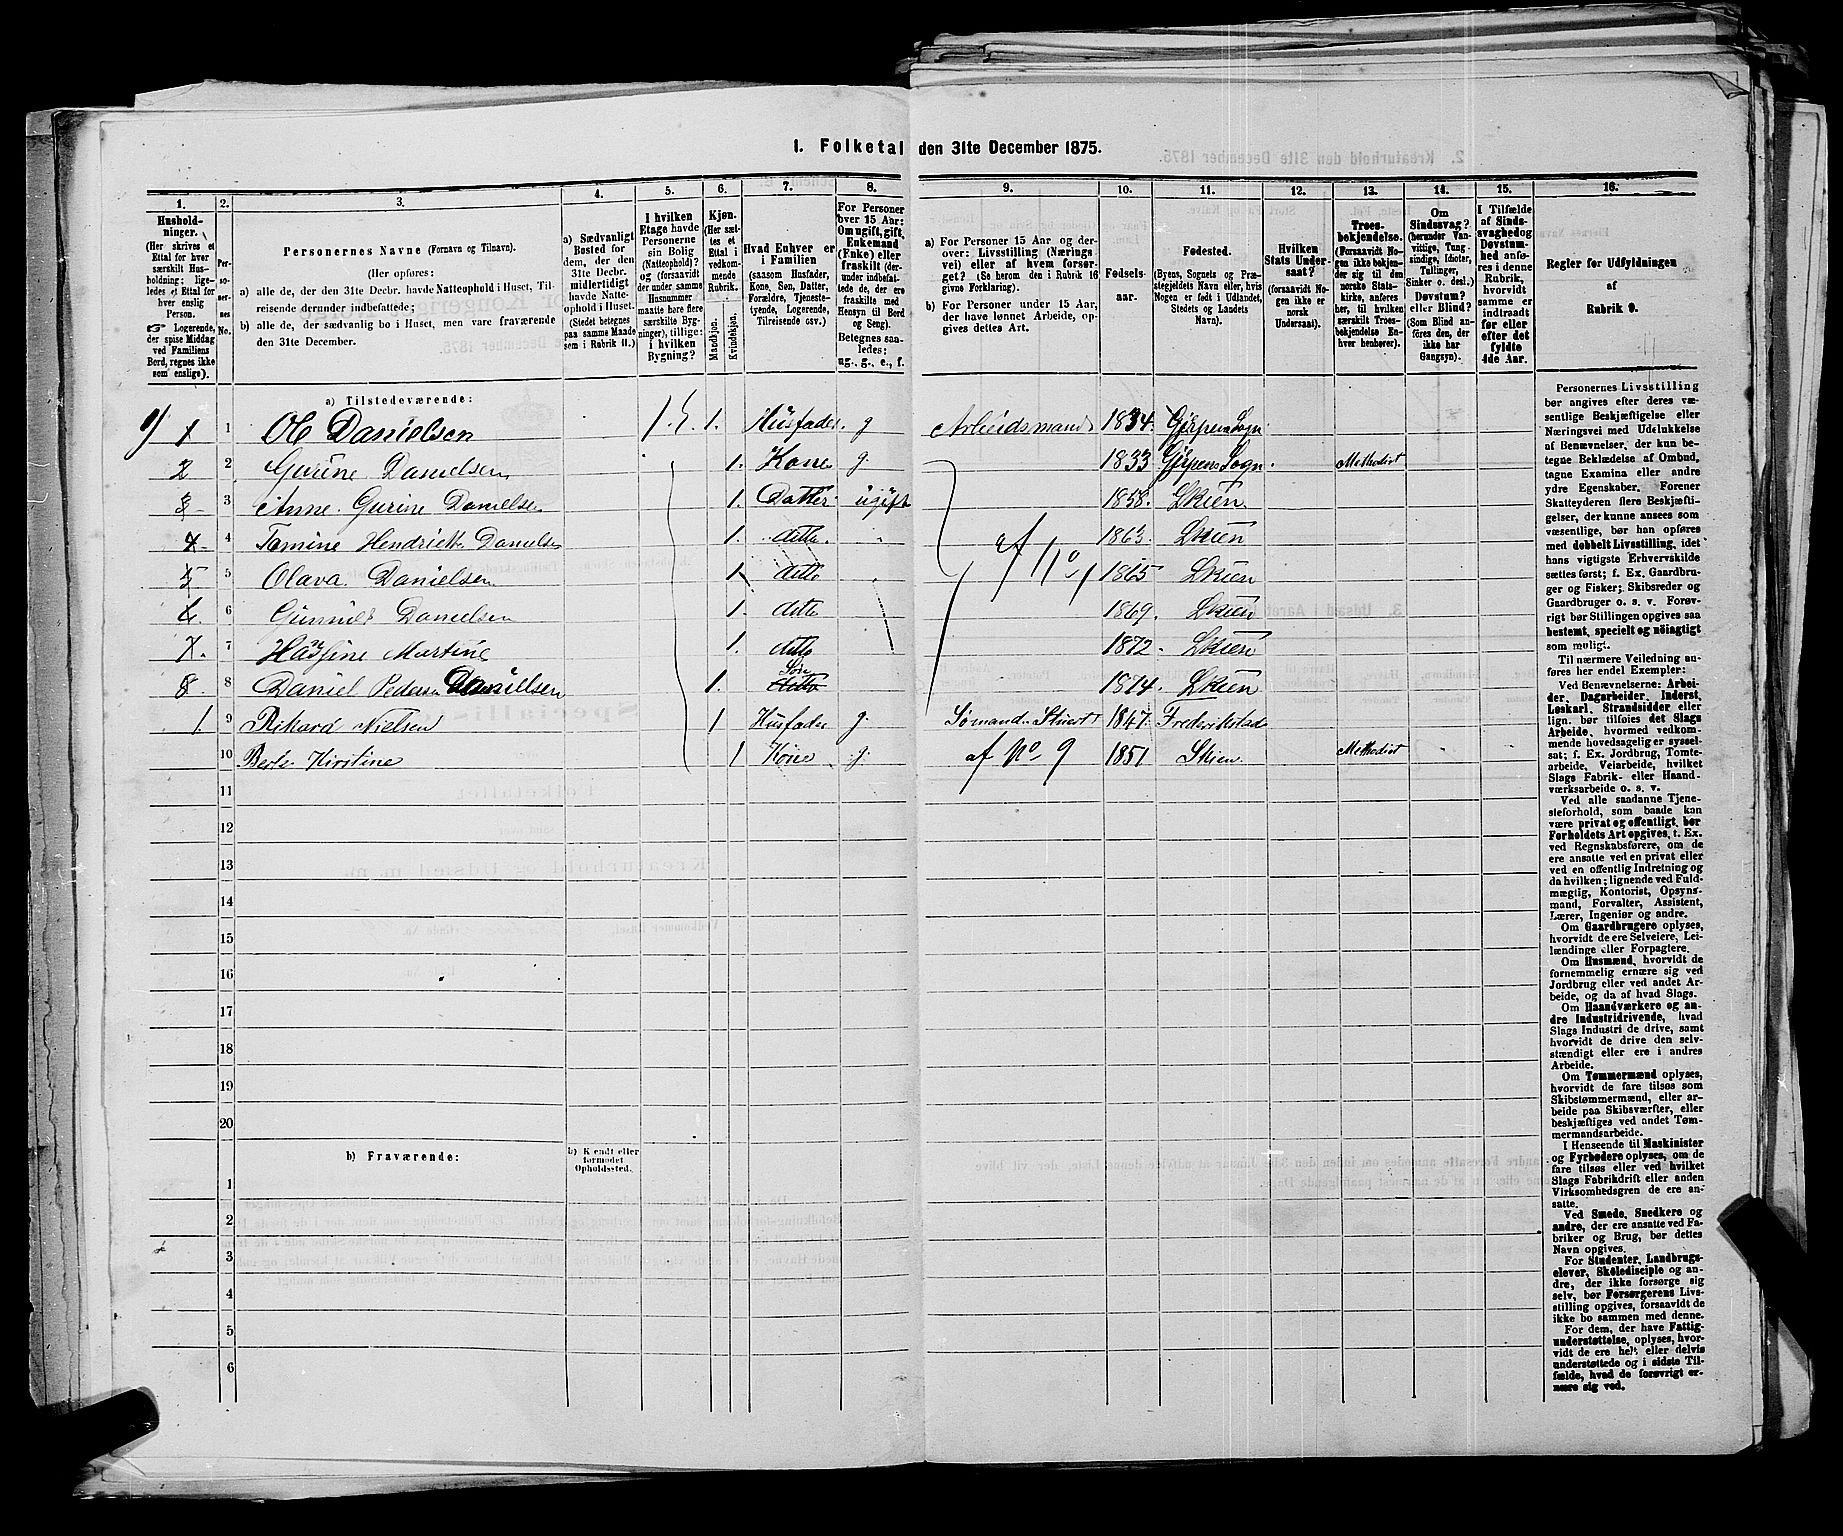 1. Folketal den 31te December 1875.
1. 2. 3. 4. 5. 6. 7. 8. 9. 10. 11. 12. 13. 14. 15. 16.
Hushold-
ninger.
(Her skrives et
Ettal for hver
særskilt Hus-
holdning; lige-
ledes et Ettal for
hver enslig
Person.
☞ Logerende,
der spise Middag
ved Familiens
Bord, regnes ikke
som enslige).
Per-
soner-
nes
No.
Personernes Navne (Fornavn og Tilnavn).
(Her opføres:
a) alle de, der den 31te Decbr. havde Natteophold i Huset, Til-
reisende derunder indbefattede;
b) alle de, der sædvanlig bo i Huset, men vare fraværende
den 31te December.
a) Sædvanligt
Bosted for
dem, der den
31te Decbr.
midlertidigt
havde Natte-
ophold i Huset.
(Stedet betegnes
paa samme Maade
som i Rubrik 11.)
I hvilken
Etage havde
Personerne
sin Bolig
(Natteophold)?
og (forsaavidt
der under samme
Husnummer
maatte høre flere
særskilte Byg-
ninger), tillige:
i hvilken
Bygning?
Kjøn.
(Her sæt-
tes et
Ettal i
vedkom-
mende
Rubrik.
Mandkjøn.
Kvindekjøn.
Hvad Enhver er
i Familien
(saasom Husfader,
Kone, Søn, Datter,
Forældre, Tjeneste-
tyende, Logerende,
Tilreisende osv.)
For Personer
over 15 Aar:
Om ugift, gift,
Enkemand
(Enke) eller
fraskilt (der-
under indbefat-
tede de, der ere
fraskilte med
Hensyn til Bord
og Seng).
Betegnes saa-
ledes:
ug., g., e., f.
a) For Personer 15 Aar og der-
over: Livsstilling (Nærings
vei) eller af hvem forsør-
get? (Se herom den i Rubrik 16
givne Forklaring).
b) For Personer under 15 Aar,
der have lønnet Arbeide, op-
gives dettes Art.
Fødsels-
aar.
Fødested.
(Byens, Sognets og Præ-
stegjeldets Navn eller, hvis
Nogen er født i Udlandet,
Stedets og Landets
Navn).
Hvilken
Stats Under-
saat?
(forsaavidt No-
gen ikke er
norsk
Undersaat).
Troes-
bekjendelse.
(Forsaavidt No-
gen ikke bekjen-
der sig til den
norske Stats-
kirke, anføres
her, til hvilken
særskilt Troes-
bekjendelse En-
hver henhører).
Om
Sindssvag?
(herunder Van-
vittige, Tung-
sindige, Idioter,
Tullinger,
Sinker o. desl.)
Døvstum?
eller Blind?
(Som Blind an-
føres den, der
ikke har
Gangsyn).
I Tilfælde
af Sinds-
svaghed og
Døvstum-
hed anfø-
res i denne
Rubrik,
hvorvidt
samme er
indtraadt
før eller
efter det
fyldte
4de Aar.
Regler for Udfyldningen
af
Rubrik 9.
a) Tilstedeværende:
1 1 Ole Danielsen 1. 1. Husfader g Arbeidsmand 1834. Gjerpens Sogn
2 2 Gurine Danielsen 1. Kone g. 1833 Gjerpens Sogn. Methodist
3 3 Anne Gurine Danielsen 1. Datter ugift 1858. Skien
4 4 Tomine Hendrikke Danielsen 1. ditto. " af No 1 1863. Skien
5 5 Olava Danielsen 1. ditto " 1865 Skien
6 6 Gunnild Danielsen 1. ditto 1869. Skien
7. 7 Hansine Martine 1. ditto 1872. Skien
8. 8 Daniel Pedersen Danielsen 1. ditto Søn 1874. Skien
1. 9 Rikard Nielsen 1 Husfader g. Sømand. Stuert 1847. Frederikstad
10 Berte Kirstine 1 Kone g. af No 9 1851 Skien Methodist
11
12
13
14
15
16
17
18
19
20
b) Fraværende:
b) Kjendt eller
formodet
Opholdssted.
1
2
3
4
5
6
Personernes Livsstilling
bør angives efter deres væ-
sentlige Beskjæftigelse eller
Næringsvei med Udelukkelse
af Benævnelser, der kun be-
tegne Beklædelse af Ombud,
tagne Examina eller andre
ydre Egenskaber. Forener
Skatteyderen flere Beskjæfti-
gelser, der kunne ansees som
væsentlige, bør han opføres
med dobbelt Livsstilling, idet
hans vigtigste Erhvervskilde
sættes først; f. Ex. Gaardbru-
ger og Fisker; Skibsreder og
Gaardbruger o. s. v. Forøv-
rigt bør Stillingen opgives saa
bestemt, specielt og nøiagtigt
som muligt.
Til nærmere Veiledning an-
føres her endel Exempler:
Ved Benævnelserne: Arbei-
der, Dagarbeider, Inderst,
Løskarl, Strandsidder eller
lign. bør tilføies det Slags
Arbeide, hvormed vedkom-
mende hovedsagelig er syssel-
sat; f. Ex. Jordbrug, Tomte-
arbeide, Veiarbeide, hvilket
Slags Fabrik- eller Haand-
værksarbeide o. s. v.
Ved alle saadanne Tjene-
steforhold, som baade kan
være privat og offentligt, bør
Forholdets Art opgives, t. Ex.
ved Regnskabsførere, om de
ere ansatte ved en privat eller
ved en offentlig Indretning og
da hvilken; lignende ved Fuld-
mægtig, Kontorist, Opsyns-
mand, Forvalter, Assistent,
Lærer, Ingeniør og andre.
Om Gaardbrugere oplyses,
hvorvidt de ere Selveiere, Lei-
lændinge eller Forpagtere.
Om Husmænd, hvorvidt de
fornemmelig ernære sig ved
Jordbrug eller ved andet Ar-
beide, og da af hvad Slags.
Om Haandværkere og an-
dre Industridrivende, hvad
Slags Industri de drive, samt
hvorvidt de drive den selv-
stændigt eller ere i andres
Arbeide.
Om Tømmermænd oplyses,
hvorvidt de fare tilsøs som
Skibstømmermænd, eller ar-
beide paa Skibsværfter, eller
beskjæftiges ved andet Tøm-
mermandsarbeide.
I Henseende til Maskinister
og Fyrbødere oplyses, om de
fare tilsøs eller ved hvilket
Slags Fabrikdrift eller anden
Virksomhedsgren de ere an-
satte.
Ved Smede, Snedkere og
andre, der ere ansatte ved Fa-
briker og Brug, bør dettes
Navn opgives.
For Studenter, Landbrugs-
elever, Skoledisciple og an-
dre, der ikke forsørge sig
selv, bør Forsørgerens Livs-
stilling opgives, forsaavidt de
ikke bo sammen med denne.
For dem, der have Fattig-
understøttelse, oplyses, hvor-
vidt de ere helt eller delvis
understøttede og i sidste Til-
fælde, hvad de forøvrigt er-
nære sig ved.